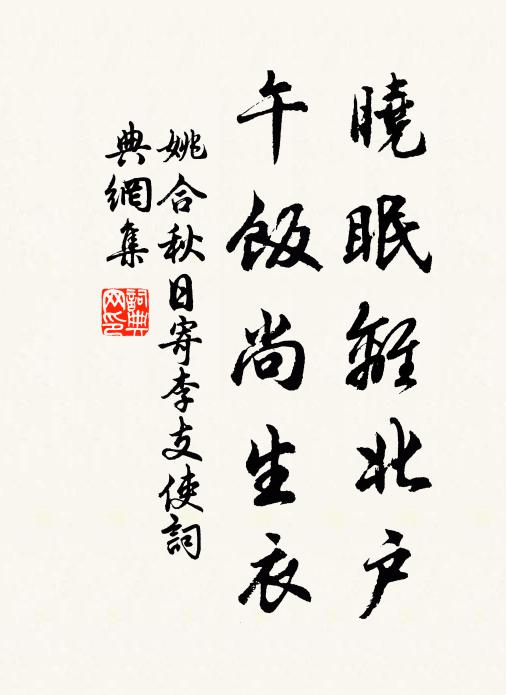 曉眠離北户
午飯尚生衣
姚合秋日寄李支使詞
典網集
詞典
网印